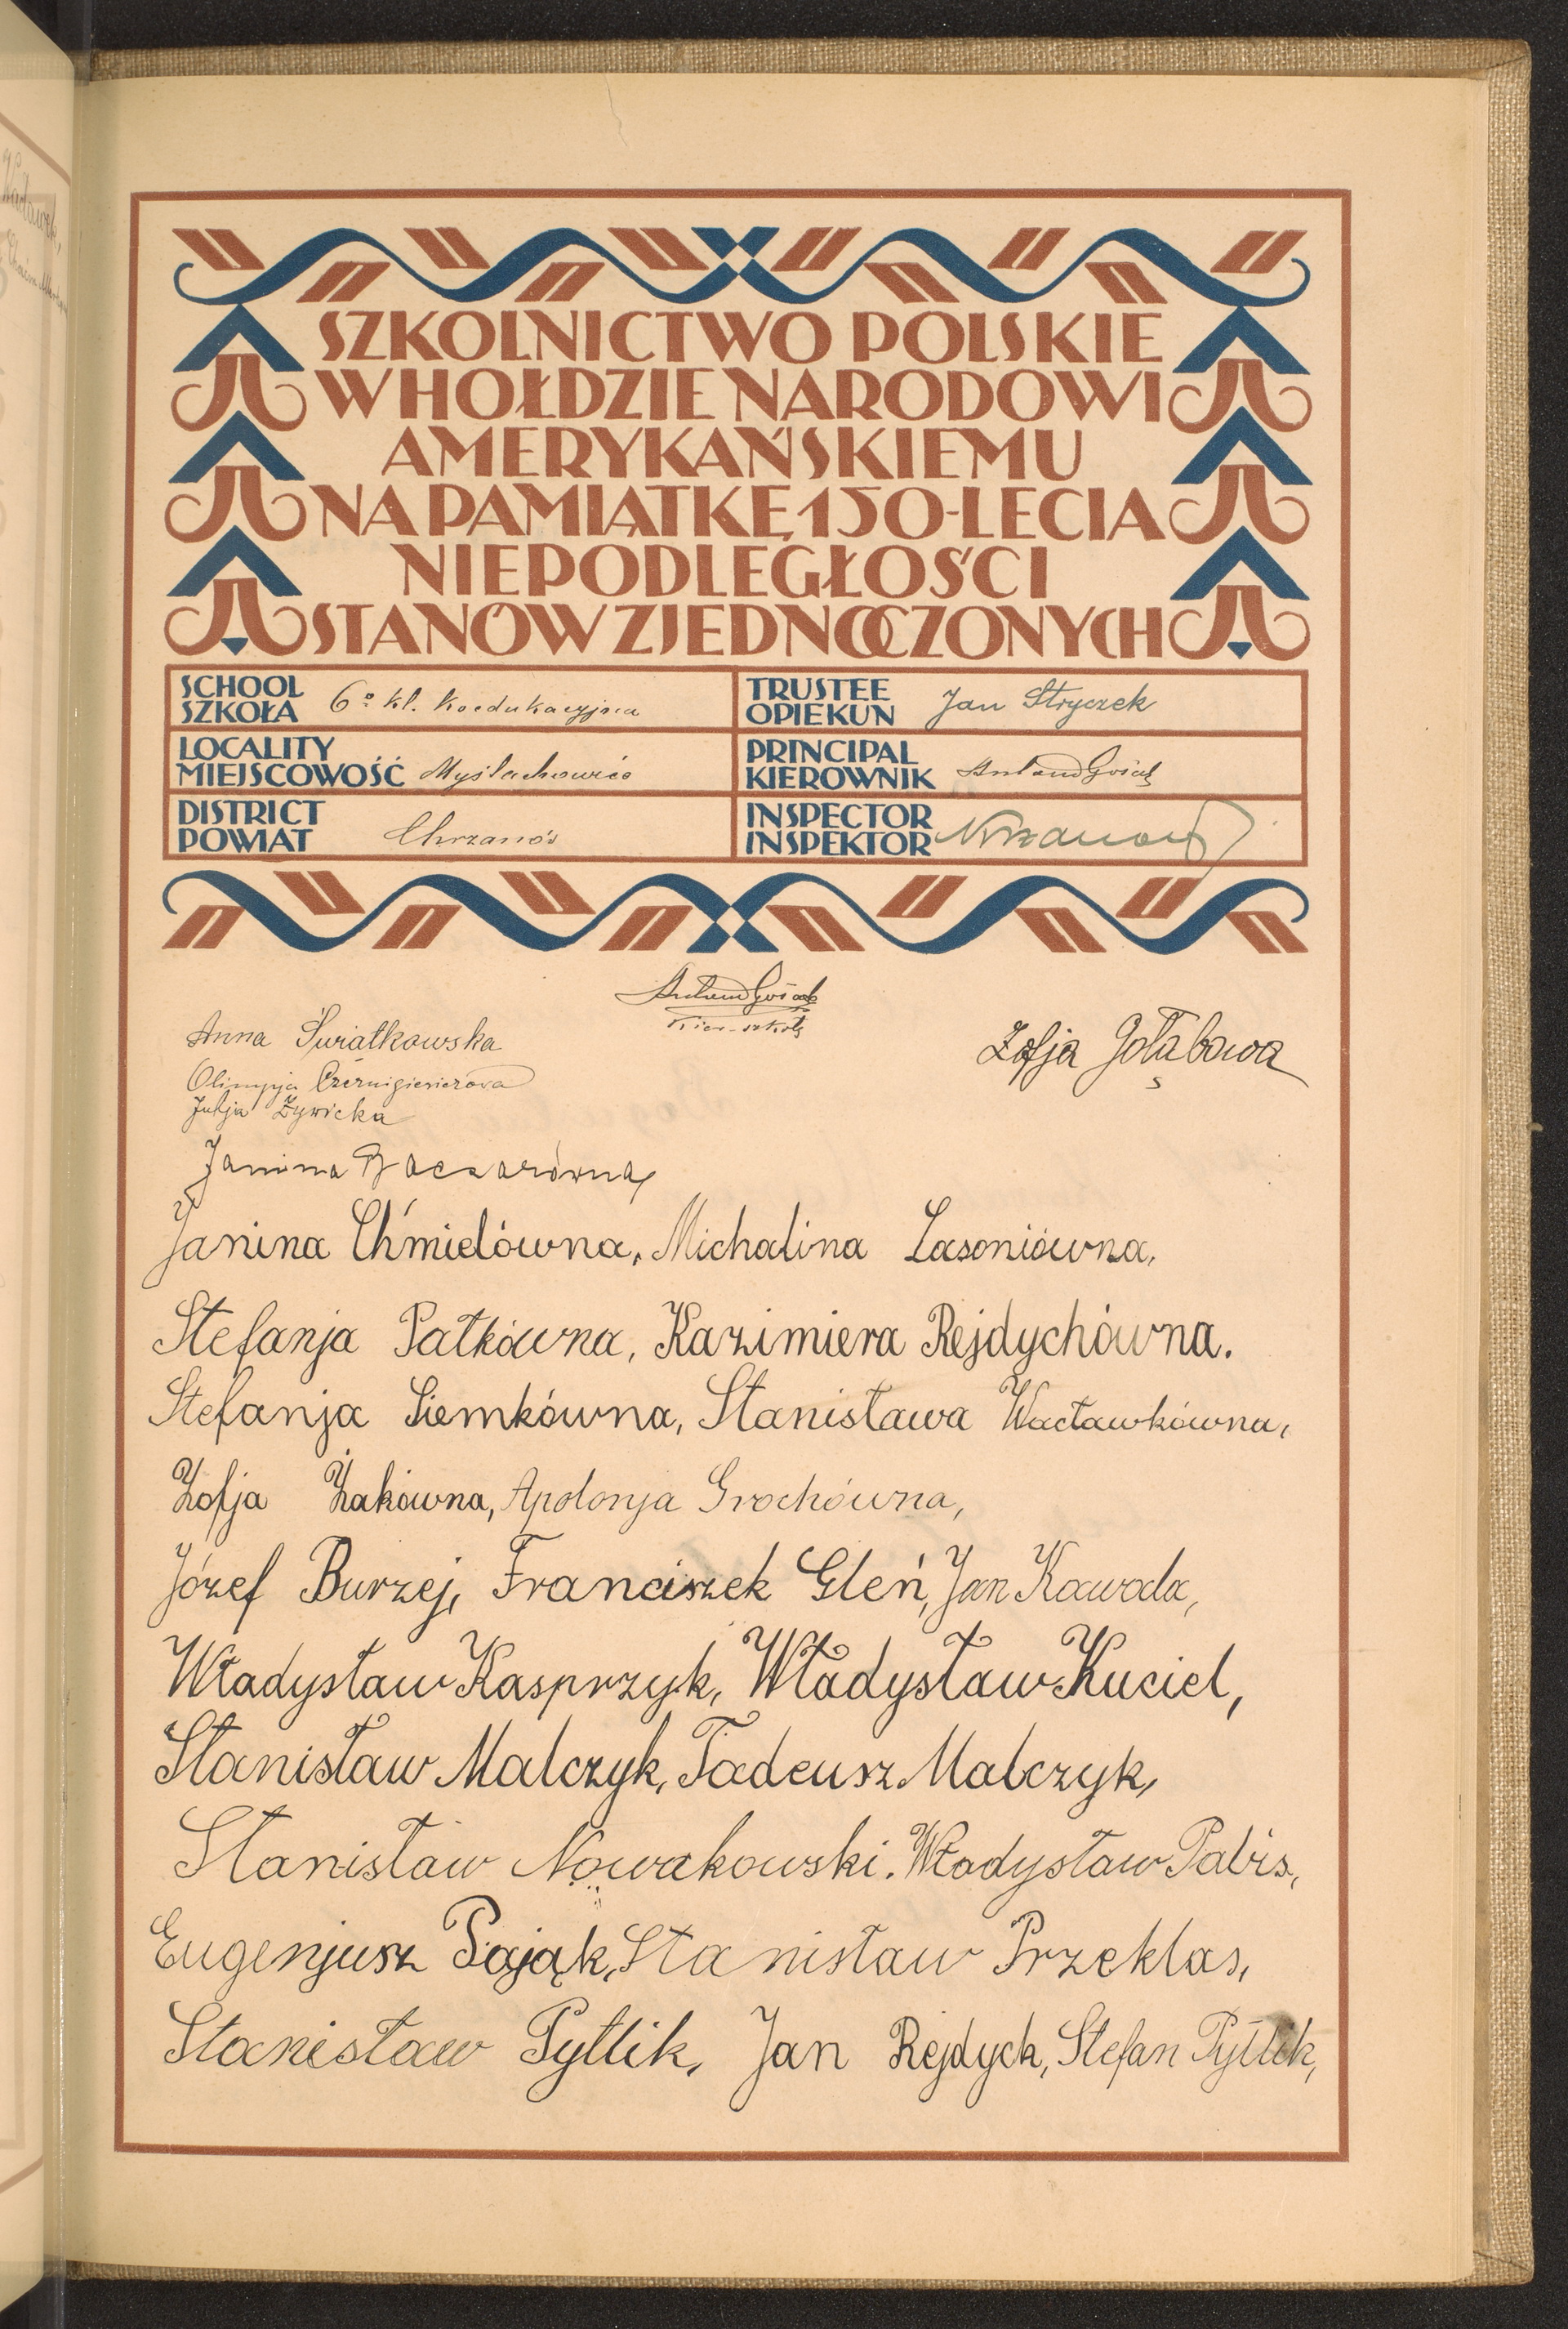 SZKOLNICTWO POLSKIE
W HOŁDZIE NARODOWI
AMERYKAŃSKIEMU
NA PAMIĄTKĘ 150-LECIA
NIEPODLEGŁOŚCI
STANÓW ZJEDNOCZONYCH
SCHOOL
SZKOŁA 6º kl. Koedukacyjna
TRUSTEE
OPIEKUN Jan Stryczek
LOCALITY
MIEJSCOWOŚĆ Myślachowice
PRINCIPAL
KIEROWNIK Antoni
DISTRICT
POWIAT Chrzanów
INSPECTOR
INSPEKTOR
Antoni
Kier. szkoły
Anna Świątkowska
Zofja Gołąbowa
Olimpja
Julja Żywicka
Janina
Janina Chmielówna, Michalina Lasoniówna,
Stefanja Patkówna, Kazimiera Rejdychówna.
Stefanja Siemkówna, Stanisława Wacławkówna,
Zofja Żakówna, Apolonja Grochówna,
Józef Burzej, Franciszek Gleń, Jan Kawada,
Władysław Kasprzyk, Władysław Kuciel,
Stanisław Malczyk, Tadeusz Malczyk,
Stanisław Nowakowski. Władysław Pabis,
Eugenjusz Pająk, Stanisław Przeklas,
Stanisław Pytlik, Jan Rejdych, Stefan Pytlik,